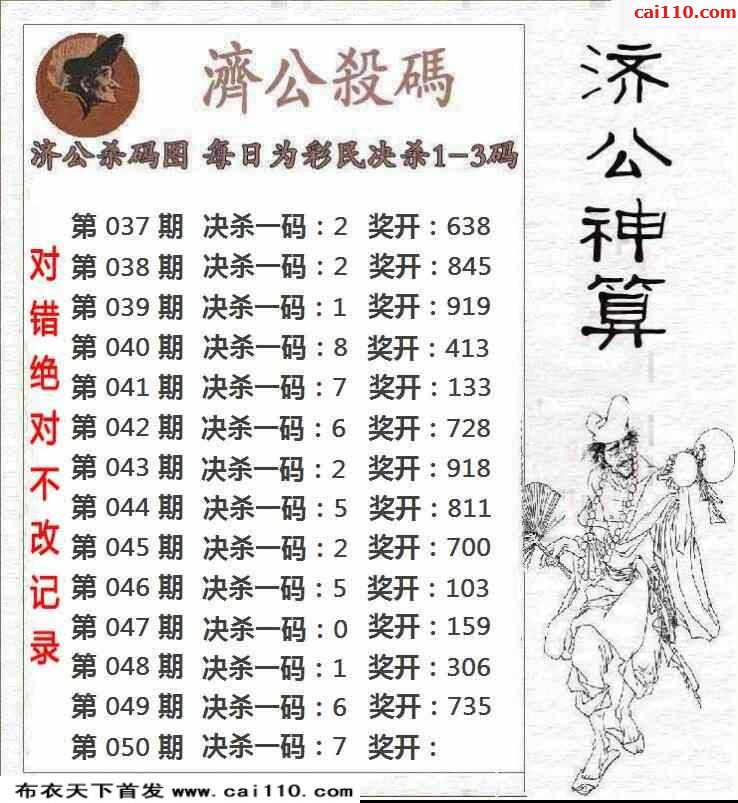 cai110.com
濟公殺碼
济公杀码图 每日为彩民决杀1-3码
第 037 期 决杀一码：2 奖开：638
第 038 期 决杀一码：2 奖开：845
第 039 期 决杀一码：1 奖开：919
第 040 期 决杀一码：8 奖开：413
第 041 期 决杀一码：7 奖开：133
第 042 期 决杀一码：6 奖开：728
第 043 期 决杀一码：2 奖开：918
第 044 期 决杀一码：5 奖开：811
第 045 期 决杀一码：2 奖开：700
第 046 期 决杀一码：5 奖开：103
第 047 期 决杀一码：0 奖开：159
第 048 期 决杀一码：1 奖开：306
第 049 期 决杀一码：6 奖开：735
第 050 期 决杀一码：7 奖开：
对错绝对不改记录
济公神算
布衣天下首发 www.cai110.com